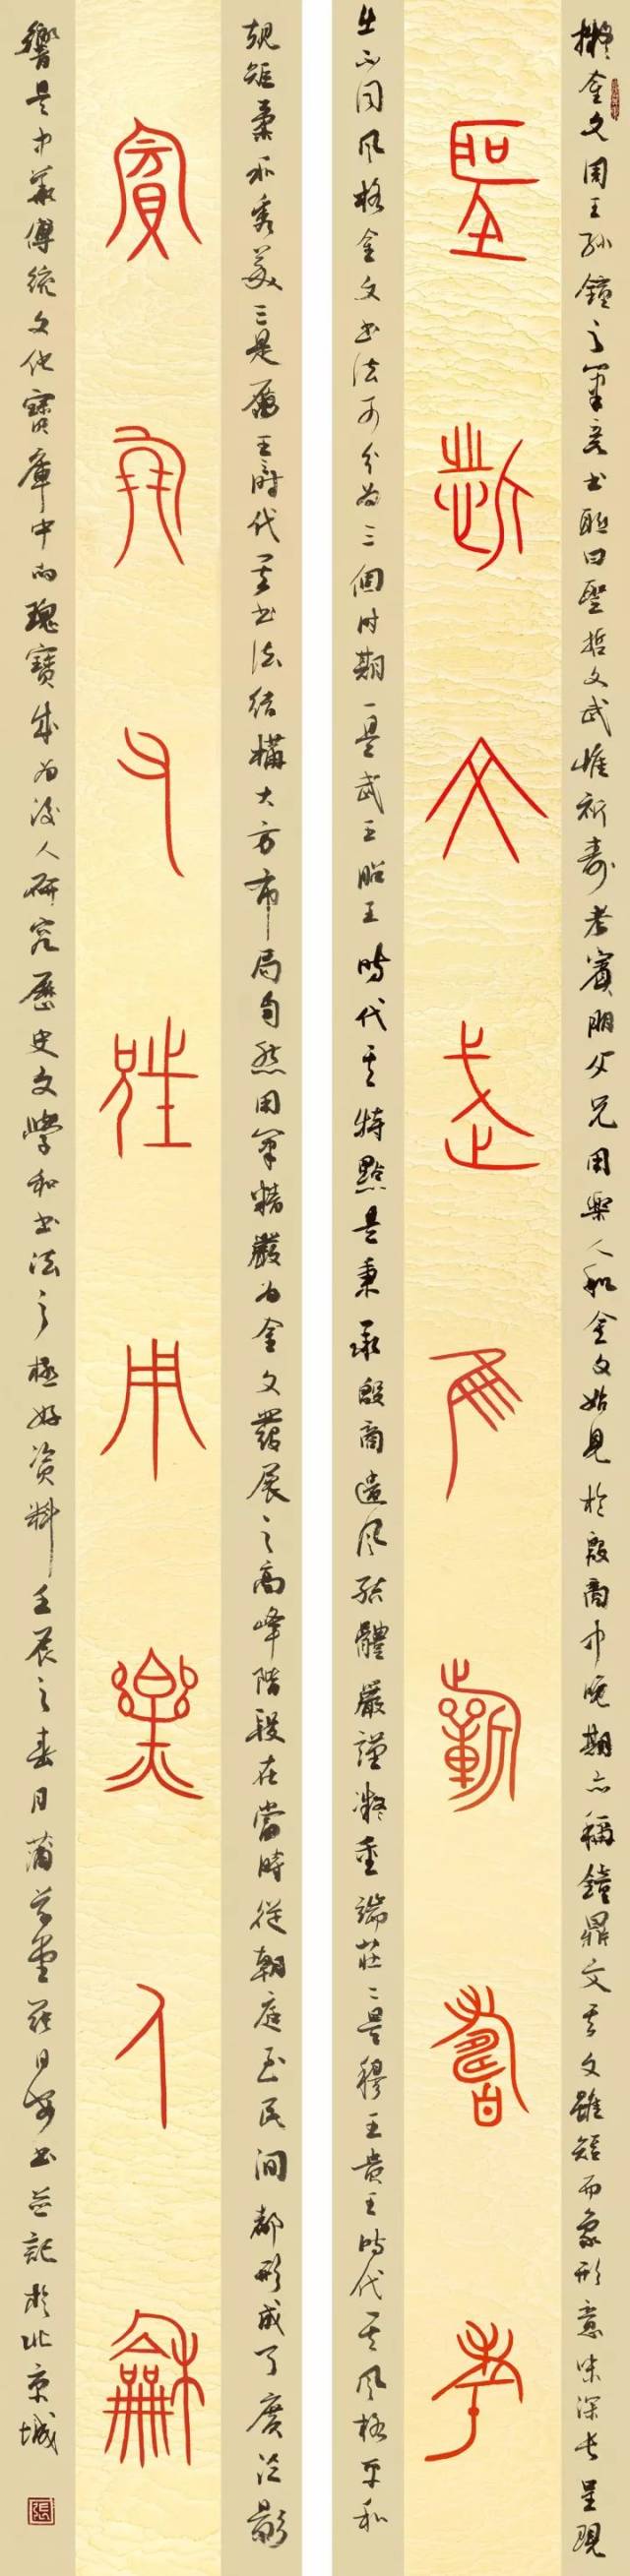 擬金文周王孙鐘之筆意书联曰聖哲文武惟祈寿考賓朋父兄用樂人和金文始見於殷商中晚期亦稱鐘鼎文其文雖短而象形意味深长呈現
聖哲文武隹祈壽考
出不同风格金文书法可分为三個时期一是武王昭王時代其特點是秉承殷商遗风结體嚴謹凝重端莊二是穆王贵王时代其风格平和
規矩柔和秀美三是厲王時代其书法结構大方布局自然用筆精嚴为金文發展之高峰階段在當時從朝庭至民間都形成了廣泛影
賓朋父兄用樂人龢
響是中華傳统文化寶庫中的瑰寶成为後人研究歷史文學和书法之極好资料壬辰之春月蒲芳堂日书並記於北京城
張